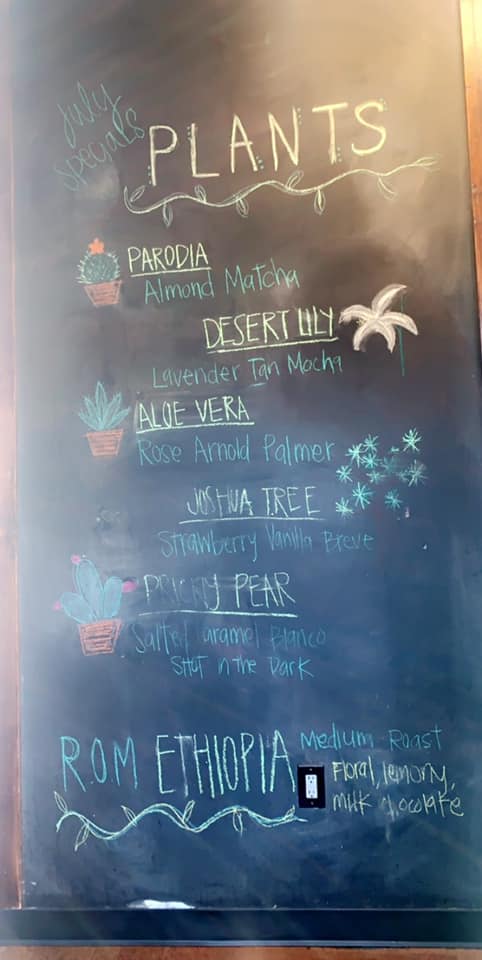 July
specials
PLANTS
PARODIA
Almond Matcha
DESERT LILY
Lavender Tan Mocha
ALOE VERA
Rose Arnold Palmer
JOSHUA TREE
Strawberry Vanilla Breve
PRICKLY PEAR
Salted Caramel Blanco
Shot in the Dark
R.O.M ETHIOPIA Medium Roast
Floral, lemony,
milk chocolate